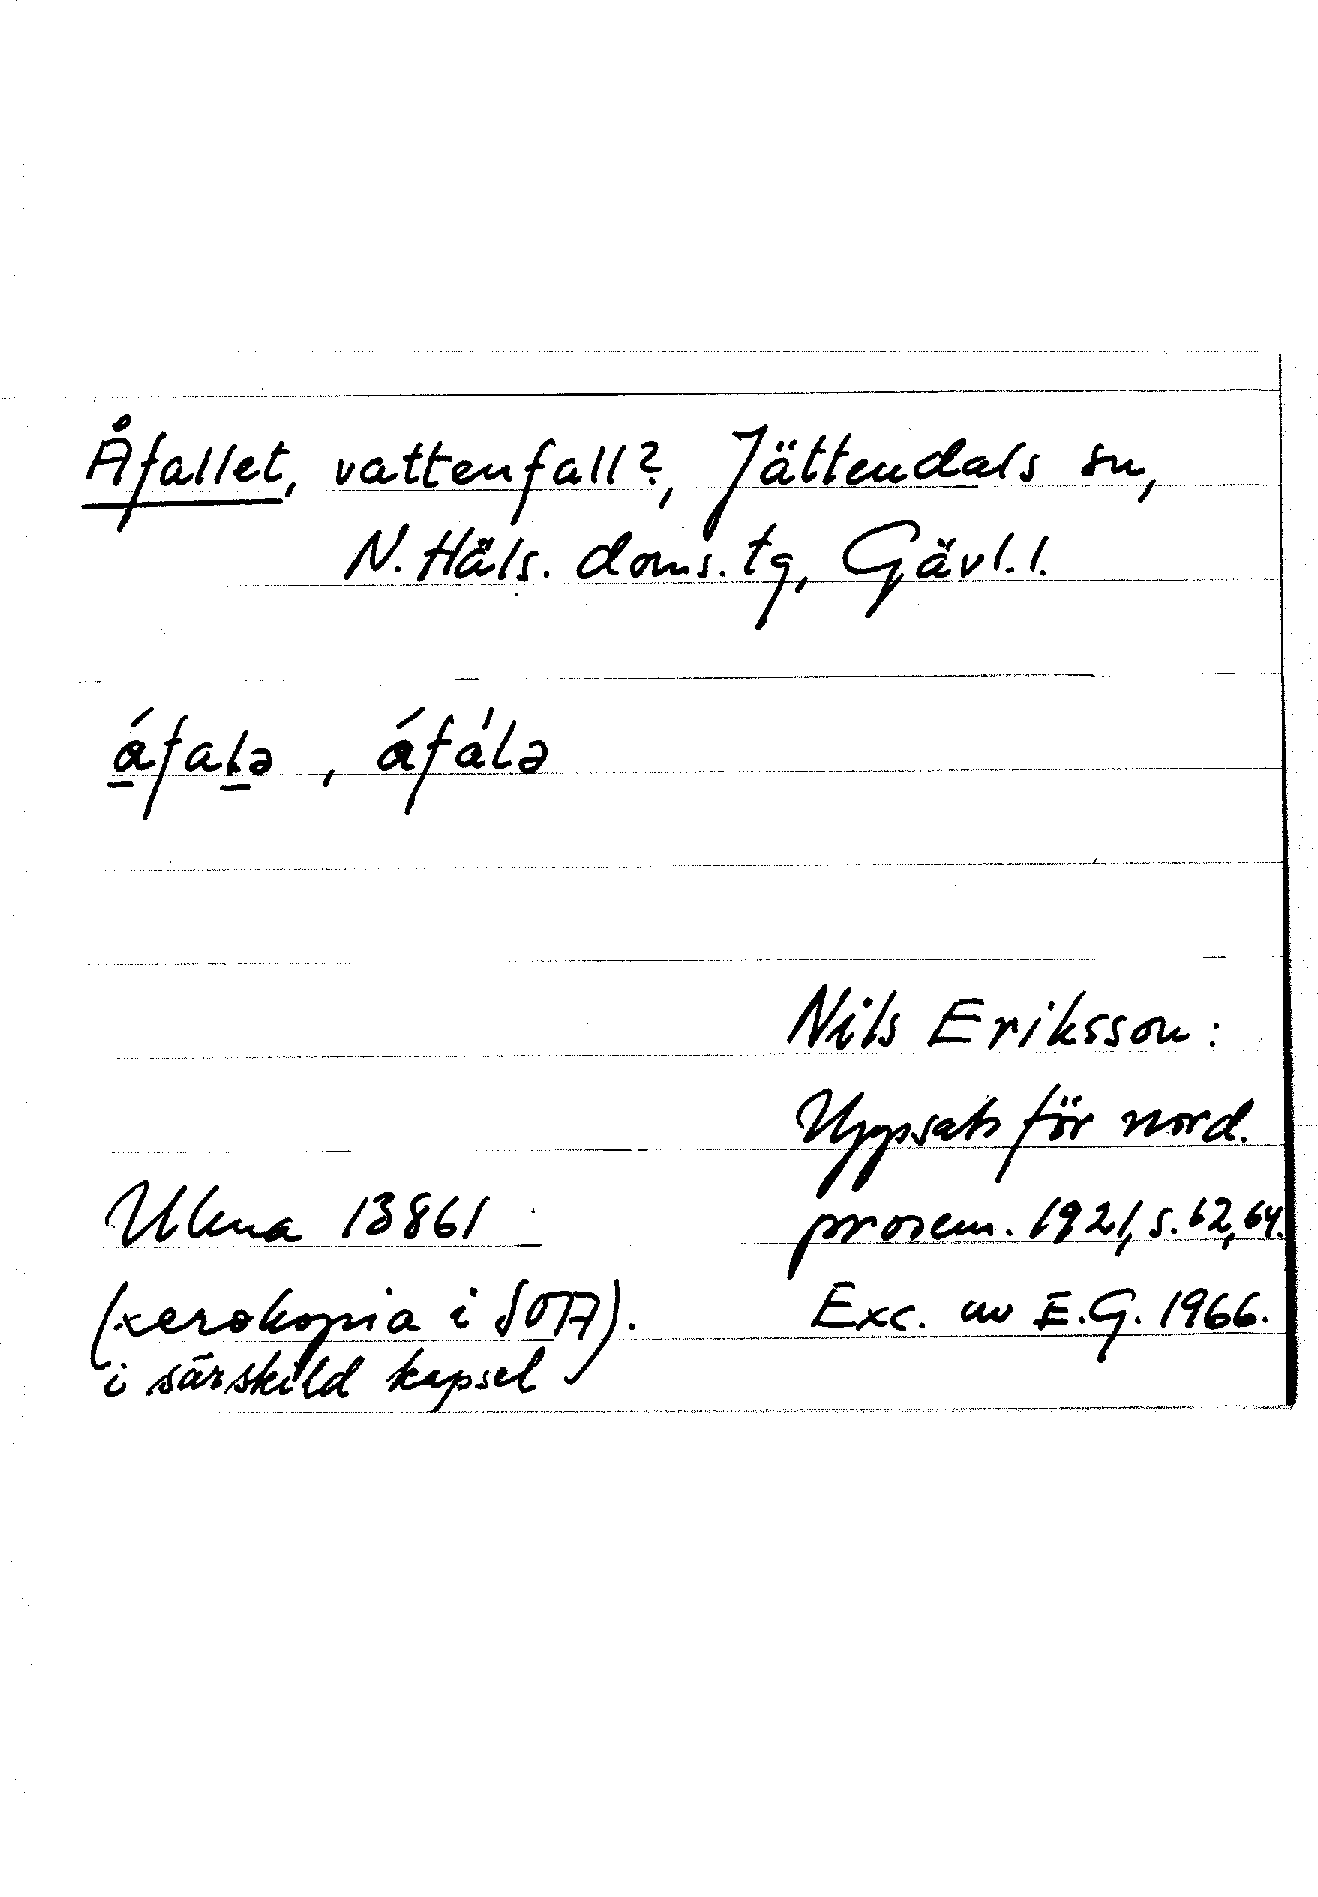 Åfallet, vattenfall?, Jättendals sn,
N. Häls. doms. tg, Gävl. l.
áfalə , áfálə
Nils Eriksson:
Uppsats för nord.
Ulma 13861
prosem. 1921, s. 62, 64.
(xerokopia i SOTA).
Exc. av E.G. 1966.
i särskild kapsel